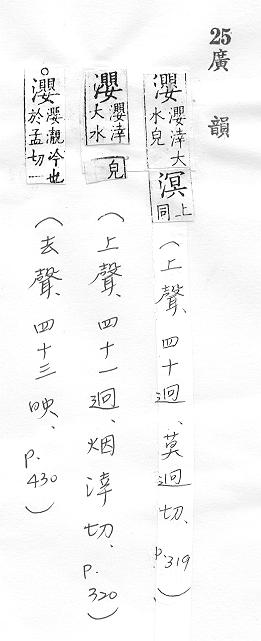 25廣韻
瀴瀴涬大水皃溟上同(上聲、四十迥、莫迥切、p.319)
瀴瀴涬大水皃(上聲、四十一迥、烟涬切、p.320)
○瀴瀴㵾冷也於孟切一(去聲、四十三映、p.430)